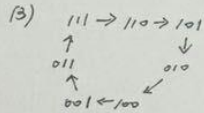 (3) 111 → 110 → 101
↑ ↓
011 010
↑ ↙
001 ← 100